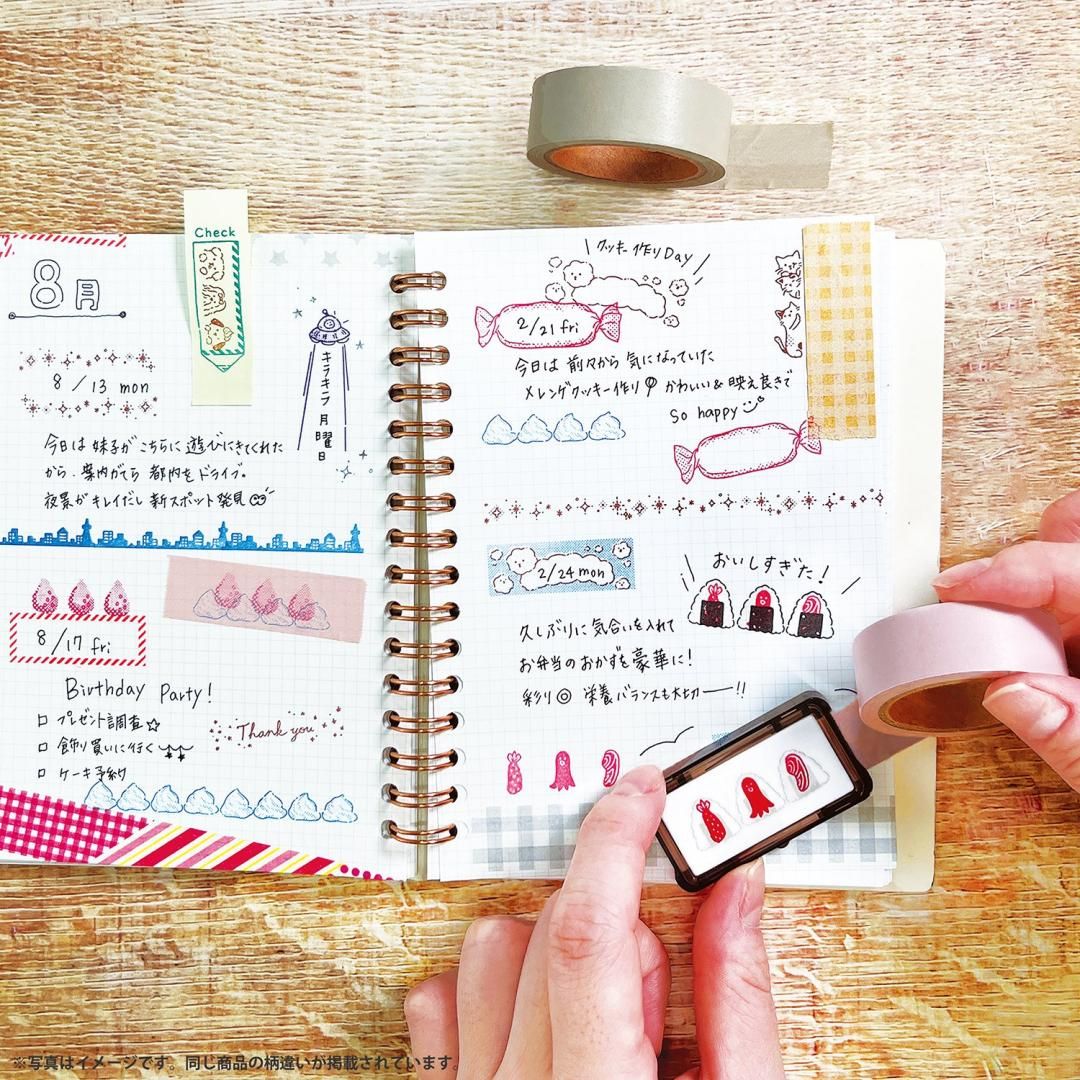 Check
8月
8/13 mon
キラキラ月曜日
今日は妹子がこちらに遊びにきてくれた
から、案内がてら都内をドライブ。
夜景がキレイだし新スポット発見
8/17 fri
Birthday Party!
□ プレゼント調査☆
□ 飾り買いに行く
□ ケーキ予約
Thank you
クッキー作りDay
2/21 fri
今日は前々から気になっていた
メレンゲクッキー作り かわいい&映え良きで
so happy
2/24 mon
おいしすぎた!
久しぶりに気合いを入れて
お弁当のおかずを豪華に!
彩り◎ 栄養バランスも大切——!!
※写真はイメージです。同じ商品の柄違いが掲載されています。